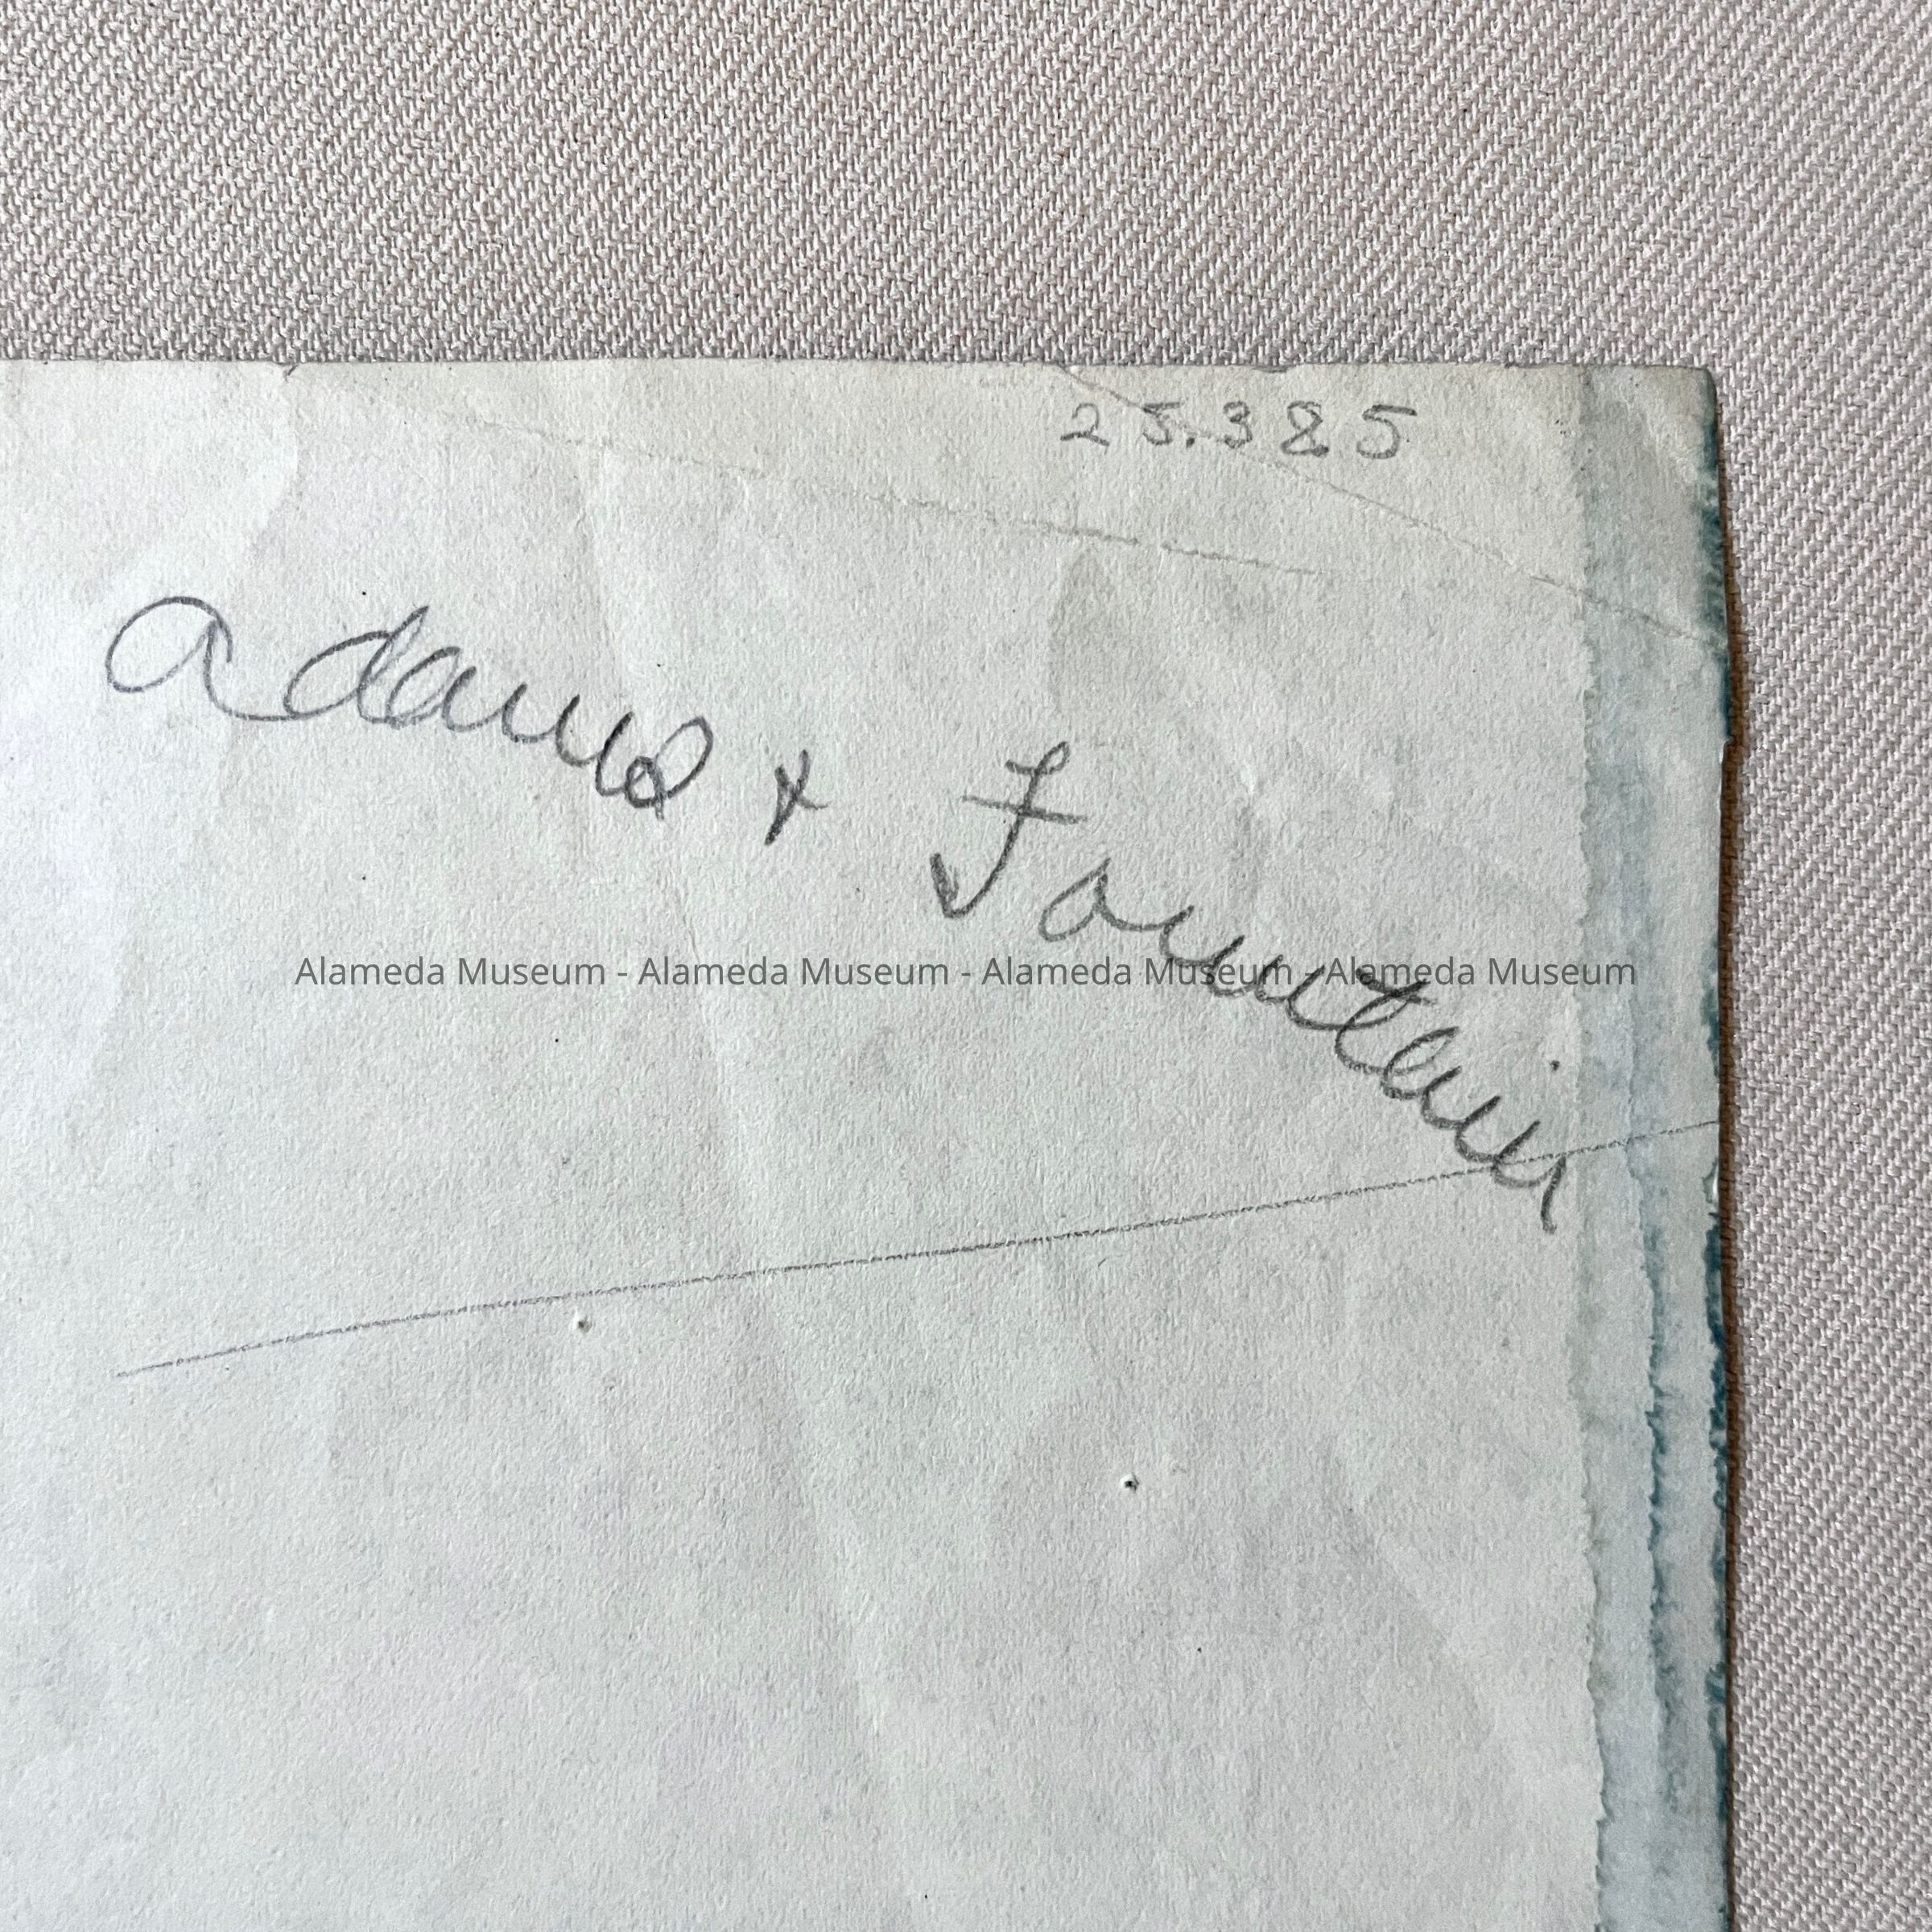 25.385
Adams & Fountain
Alameda Museum - Alameda Museum - Alameda Museum - Alameda Museum